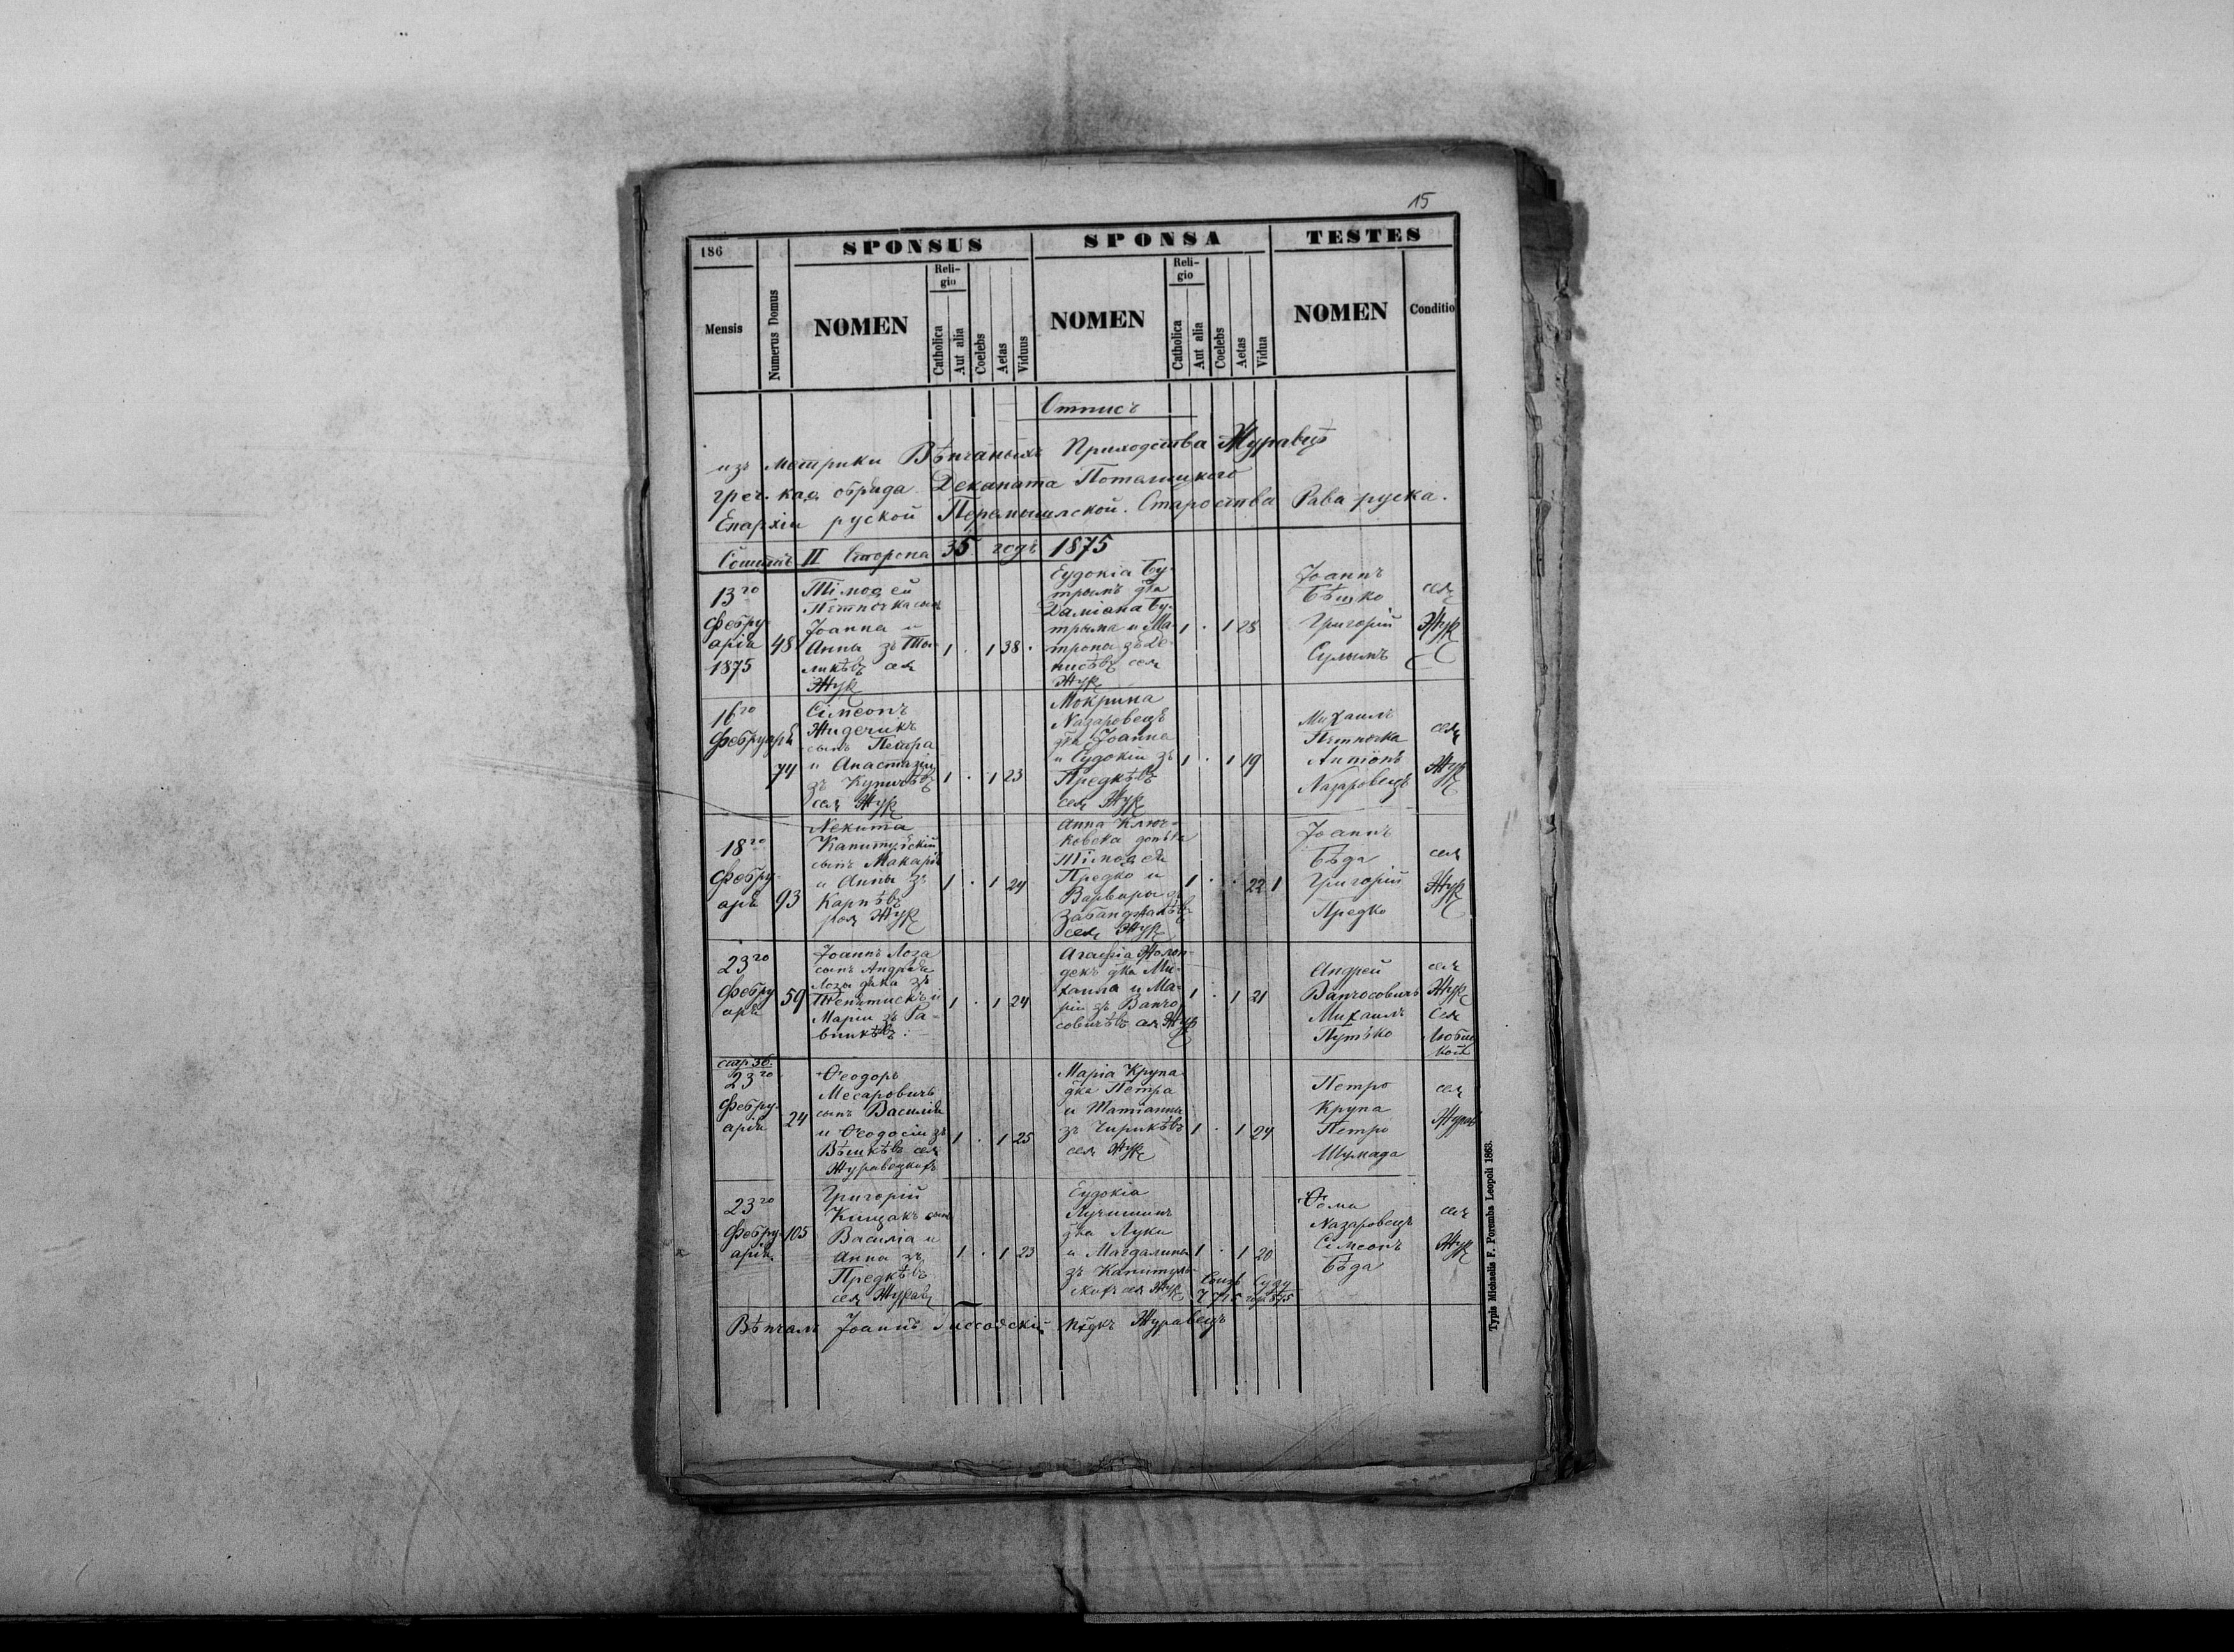 15
186
SPONSUS
SPONSA
TESTES
Mensis
Numerus Domus
NOMEN
Reli-
gio
Catholica
Aut alia
Coelebs
Aetas
Viduus
NOMEN
Reli-
gio
Catholica
Aut alia
Coelebs
Aetas
Vidua
NOMEN
Conditio
Отписъ
изъ Метрики Вѣнчаныхъ Приходства Журавцѣ
греч. каѳ. обряда Деканата Потылицкого
Епархіи руской Перемышлской. Староства Рава руска.
II Сторона 35. годъ 1875
13го
Февру-
арія
1875
48
Тімоѳей
Пѣтночка сынъ
Joанна и
Анны зъ
Жур
1 . 1 38 .
Еудокіа Бу-
трынъ дка
Даміана Бу-
трына и Ма-
трона зъ Де-
нисѣвъ сел
Жур
1 . 1 28
Joаннъ
Бѣцко
Григорій
Сулымъ
сел
Жур
16го
Февруаріа
74
Сімеонъ
Жидечикъ
сынъ Петра
и Анастазіи
зъ
сел Жур
1 . 1 23
Мокрина
Назаровецъ
дка Joанна
и Еудокіи зъ
Предкѣвъ
сел Жур
1 . 1 19
Михаилъ
Пѣтночка
Антонъ
Назаровецъ
сел
Жур
18го
Февру-
аріа
93
Некита
Капитульскій
сынъ Макаріа
и Анны зъ
Карпѣвъ
рол Жур
1 . 1 24
Анна Ключ-
ковска донька
Тімоѳеа
Предко и
Варвары зъ
сел Жур
1 . . 22 1
Joаннъ
Бѣда
Григорій
Предко
сел
Жур
23го
Февру
аріа
59
Joаннъ Лоза
сынъ Андреа
Лозы дяка зъ
Маріи зъ Ра-
1 . 1 24
Агафіа Жолон-
декъ дка Ми-
хаила и Ма-
ріи зъ Ванчо-
совичѣвъ сел Жур
1 . 1 21
Андрей
Ванчосовичъ
Михаилъ
Путько
сел
Жур
Сел
стр 36.
23го
Февру-
аріа
24
Ѳеодоръ
Месаровичъ
сынъ Василіа
и Ѳеодосіи зъ
сел
1 . 1 25
Маріа Крупа
дка Петра
и Татіанны
зъ Чирикѣвъ
сел Жур
1 . 1 24
Петро
Крупа
Петро
Шумада
сел
Журав
23го
Февру-
аріа
105
Григорій
Кищакъ сынъ
Василіа и
Анна зъ
Предкѣвъ
сел Журав
1 . 1 23
Еудокіа
дка Луки
и Магдалины
зъ Капитуль-
скихъ сел Жур
1 . 1 20
Ѳома
Назаровецъ
Сімеонъ
Бѣда
сел
Жур
Вѣнчалъ Joаннъ Журавецъ
Typis Michaelis F. Poremba Leopoli 1863.